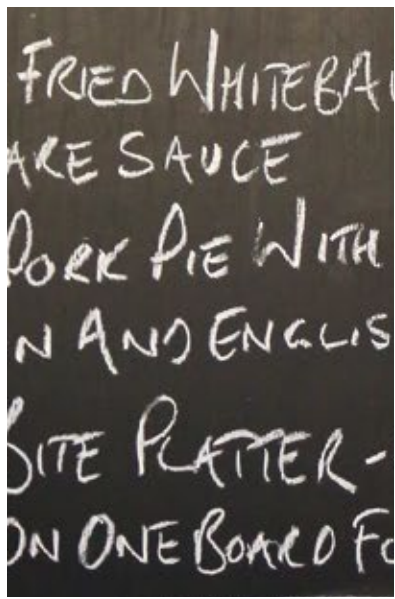 FRIED WHITEBAI
ARE SAUCE
PORK PIE WITH
N AND ENGLIS
BITE PLATTER-
ON ONE BOARD FO